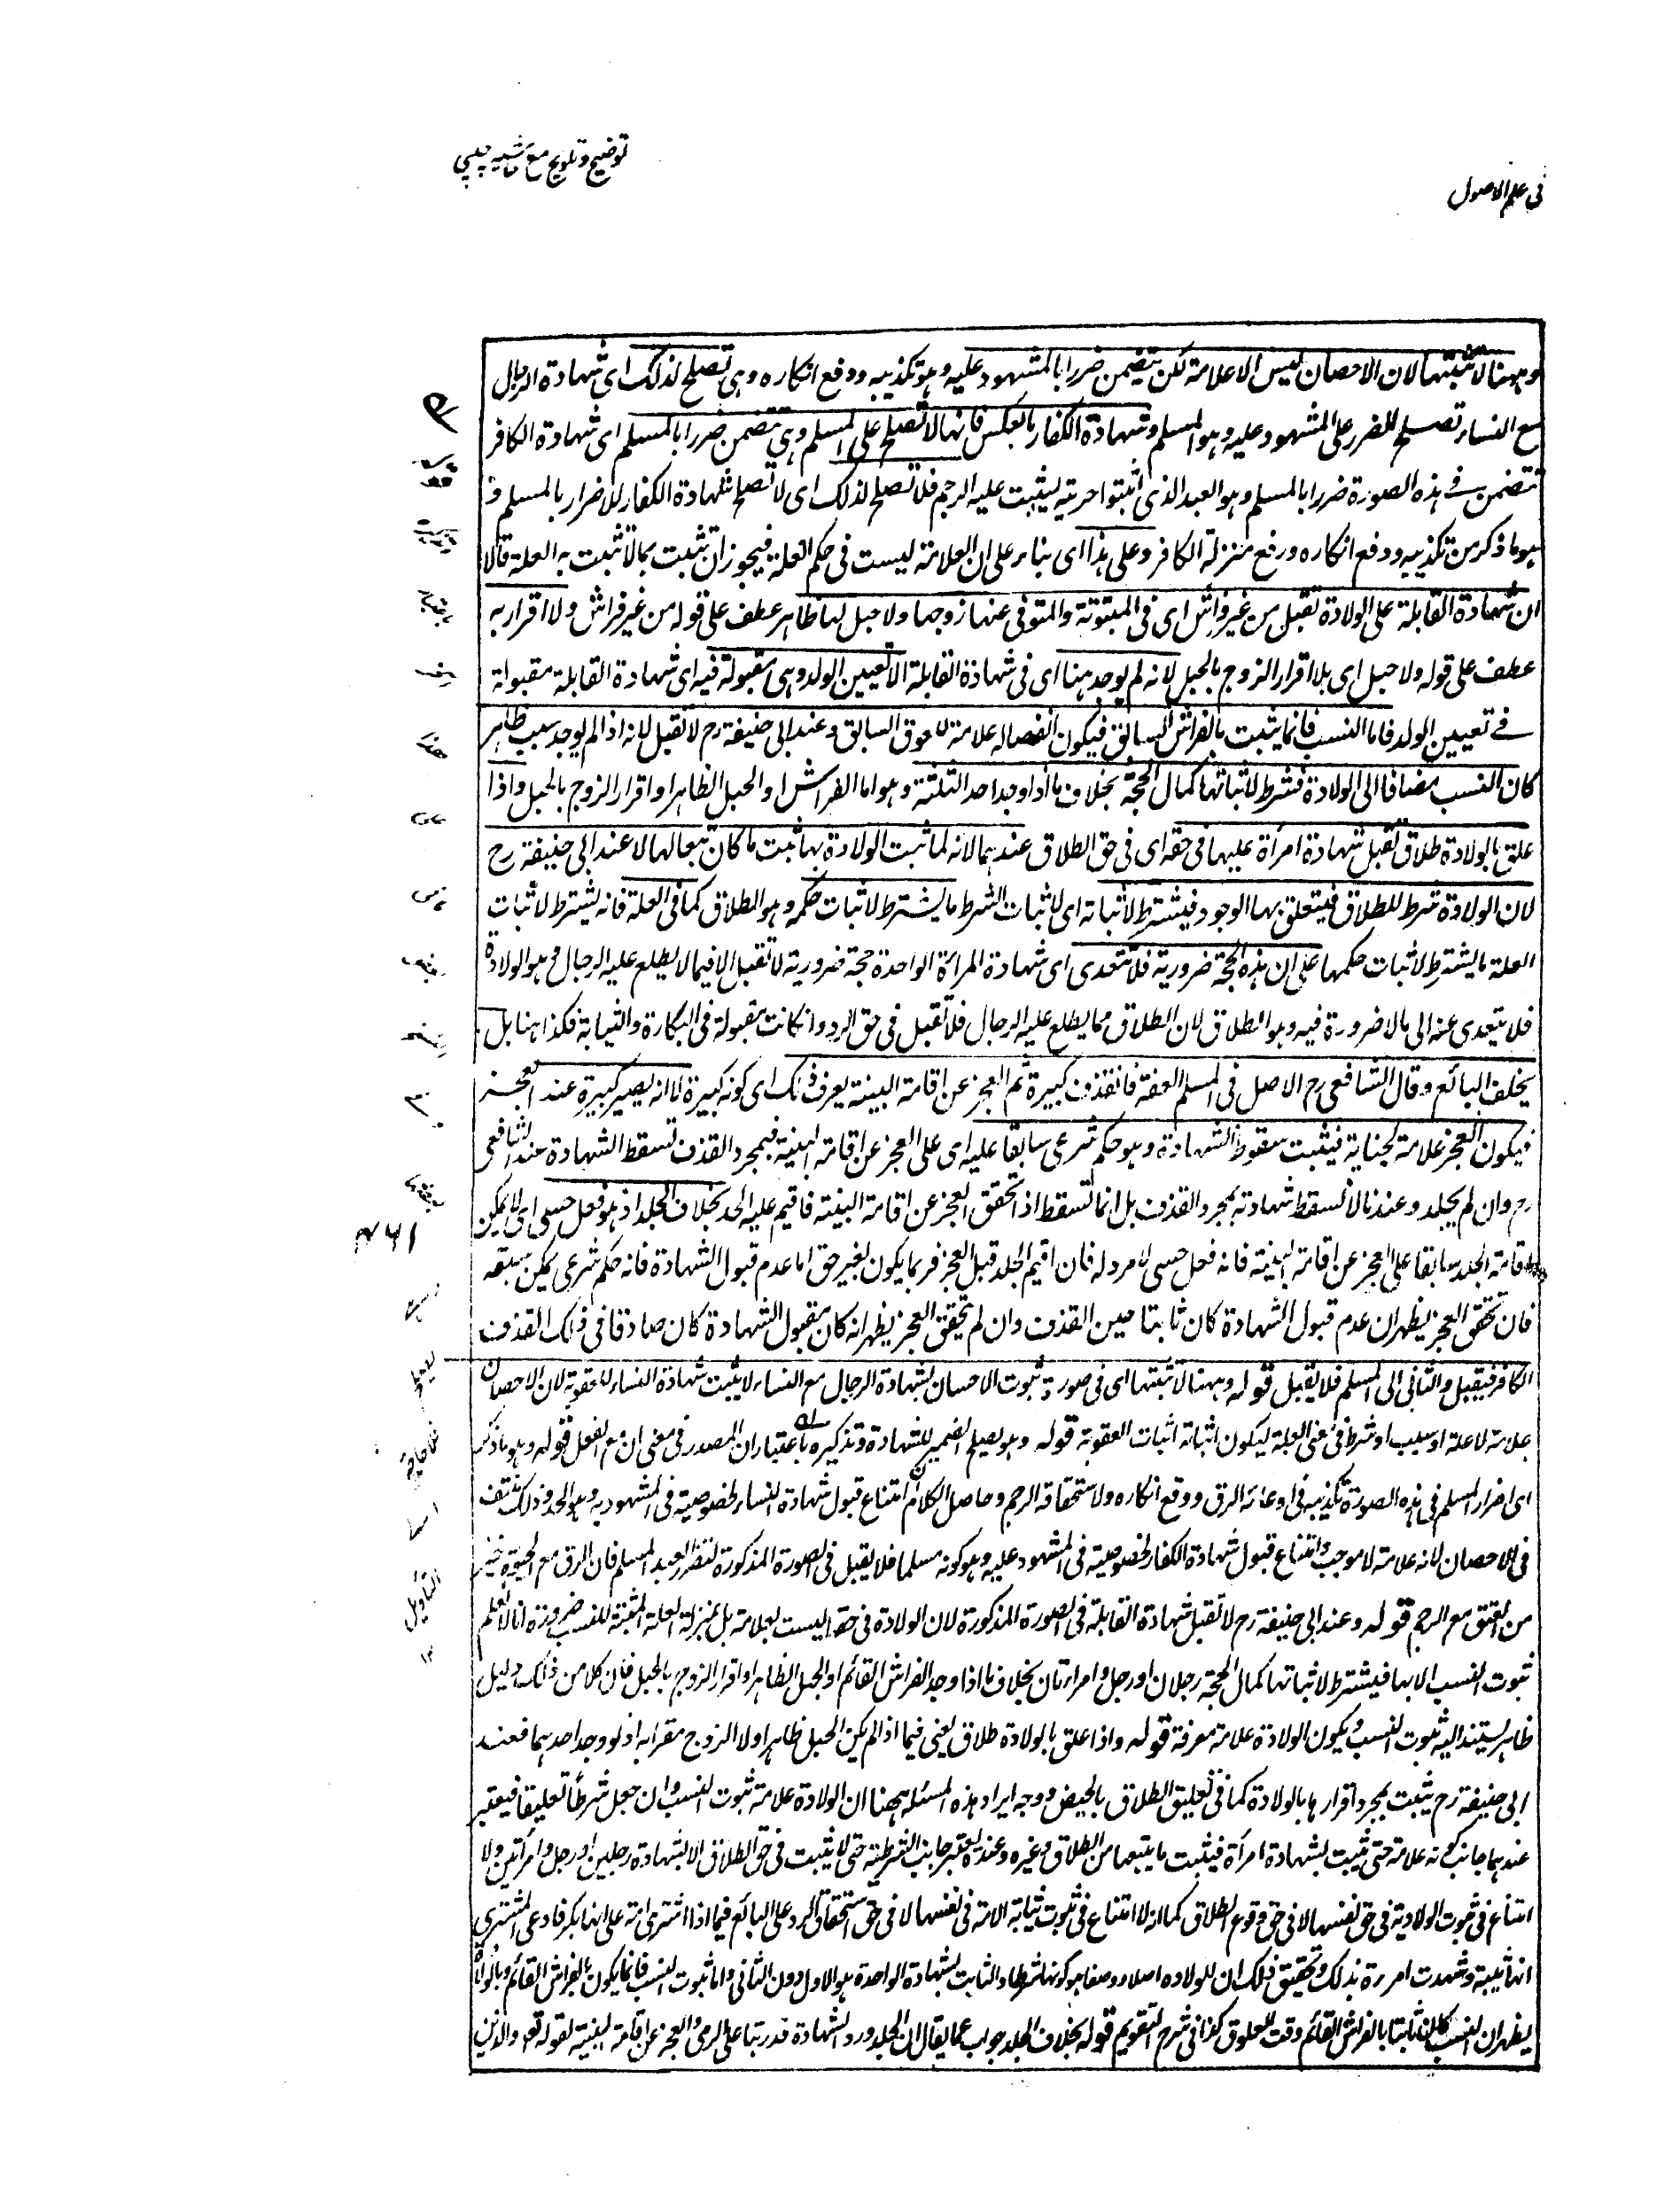 توضيح وتلويح مع حاشيه چلپي
في علم الاصول
وههنا لا تثبتها لان الاحصان ليس الا علامة لكن يتضمن ضررا بالمشهود عليه وهو تكذيبه ودفع انكاره وهى تصلح لذلك اى شهادة الرجال
مع النساء تصلح للضرر على المشهود عليه وهو المسلم وشهادة الكفار بالعكس فانها لا تصلح على المسلم وهى تتضمن ضررا بالمسلم اى شهادة الكافر
تتضمن فى هذه الصورة ضررا بالمسلم وهو العبد الذى اثبتوا حريته ليثبت عليه الرجم فلا تصلح لذلك اى لا تصلح شهادة الكفار للاضرار بالمسلم و
هو ما ذكر من تكذيبه ودفع انكاره ورفع منزلة الكافر وعلى هذا اى بناء على ان العلامة ليست فى حكم العلة فيجوز ان تثبت بما لا تثبت به العلة قالا
ان شهادة القابلة على الولادة تقبل من غير فراش اى فى المبتوتة والمتوفى عنها زوجها ولا حبل لها ظاهر عطف على قوله من غير فراش ولا اقرار به
عطف على قوله ولا حبل اى بلا اقرار الزوج بالحبل لانه لم يوجد هنا اى فى شهادة القابلة الا تعيين الولد وهى مقبولة فيه اى شهادة القابلة مقبولة
فى تعيين الولد فاما النسب فانما يثبت بالفراش السابق فيكون انفصاله علامة للعلوق السابق وعند ابى حنيفة رح لا تقبل لانه اذا لم يوجد سبب ظاهر
كان النسب مضافا الى الولادة فشرط لاثباتها كمال الحجة بخلاف ما اذا وجد احد الثلثة وهو اما الفراش او الحبل الظاهر او اقرار الزوج بالحبل واذا
علق بالولادة طلاق تقبل شهادة امرأة عليها فى حقه اى فى حق الطلاق عندهما لانه لما ثبت الولادة بها ثبت ما كان تبعا لها لا عند ابى حنيفة رح
لان الولادة شرط للطلاق فيتعلق بها الوجود فيشترط لاثباته اى لاثبات الشرط ما يشترط لاثبات حكمه وهو الطلاق كما فى العلة فانه يشترط لاثبات
العلة ما يشترط لاثبات حكمها على ان هذه الحجة ضرورية فلا تتعدى اى شهادة المرأة الواحدة حجة ضرورية لا تقبل الا فيما لا يطلع عليه الرجال وهو الولادة
فلا يتعدى عنه الى ما لا ضرورة فيه وهو الطلاق لان الطلاق مما يطلع عليه الرجال فلا تقبل فى حق الرد وان كانت مقبولة فى البكارة والثيابة فكذا هنا بل
يحلف البائع وقال الشافعى رح الاصل فى المسلم العفة فالقذف كبيرة ثم العجز عن اقامة البينة يعرف ذلك اى كونه كبيرة لا انه يصير كبيرة عند العجز
فيكون العجز علامة لجناية فيثبت سقوط الشهادة وهو حكم شرعى سابقا عليه اى على العجز عن اقامة البينة فبمجرد القذف تسقط الشهادة عند الشافعى
رح وان لم يجلد وعندنا لا تسقط شهادته بمجرد القذف بل انما تسقط اذا تحقق العجز عن اقامة البينة فاقيم عليه الحد بخلاف الجلد اذ هو فعل حسى اى لا يمكن
اقامة الجلد سابقا على العجز عن اقامة البينة فانه فعل حسى لا مرد له فان اقيم الجلد قبل العجز فربما يكون بغير حق اما عدم قبول الشهادة فانه حكم شرعى يمكن سبقه
فان تحقق العجز يظهر ان عدم قبول الشهادة كان ثابتا حين القذف وان لم يتحقق العجز يظهر انه كان مقبول الشهادة كان صادقا فى ذلك القذف
الكافر فيقبل والثانى الى المسلم فلا يقبل قوله وههنا لا تثبتها اى فى صورة ثبوت الاحسان بشهادة الرجال مع النساء لا يثبت شهادة النساء للعقوبة لان الاحصان
علامة لا علة او سبب او شرط فى معنى العلة ليكون اثباته اثبات العقوبة قوله وهو يصلح الضمير للشهادة وتذكيره باعتبار ان المصدر فى معنى ان مع الفعل قوله وهو ما ذكر
اى اضرار المسلم فى هذه الصورة تكذيبه فى ادعائه الرق ودفع انكاره ولاستحقاقه الرجم وحاصل الكلام ان امتناع قبول شهادة النساء لخصوصية فى المشهود به وهو الحد وذلك منتف
فى الاحصان لانه علامة لا موجب وامتناع قبول شهادة الكفار لخصوصية فى المشهود عليه وهو كونه مسلما فلا يقبل فى الصورة المذكورة لتضرر العبد المسلم فان الرق مع الحيوة خير
من العتق مع الرجم قوله وعند ابى حنيفة رح لا تقبل شهادة القابلة فى الصورة المذكورة لان الولادة فى حقنا ليست بعلامة بل بمنزلة العلة المثبتة للنسب ضرورة انا لا نعلم
ثبوت النسب الا بها فيشترط لاثباتها كمال الحجة رجلان او رجل وامرءتان بخلاف ما اذا وجد الفراش القائم او الحبل الظاهر او اقرار الزوج بالحبل فان كلا من ذلك دليل
ظاهر يستند اليه ثبوت النسب ويكون الولادة علامة معرفة قوله واذا علق بالولادة طلاق يعنى فيما اذا لم يكن الحبل ظاهرا ولا الزوج مقرا به اذ لو وجد احدهما فعند
ابى حنيفة رح يثبت بمجرد اقرارها بالولادة كما فى تعليق الطلاق بالحيض ووجه ايراد هذه المسئلة ههنا ان الولادة علامة ثبوت النسب وان جعل شرطا تعليقا فيعتبر
عندهما جانب كونه علامة حتى يثبت بشهادة امرأة فيثبت ما يتبعها من الطلاق وغيره وعنده يعتبر جانب الشرطية حتى لا يثبت فى حق الطلاق الا بشهادة رجلين او رجل وامرأتين ولا
امتناع فى ثبوت الولادة فى حق نفسها لا فى حق وقوع الطلاق كما انه لا امتناع فى ثبوت ثيابة الامة فى نفسها لا فى حق استحقاق الرد على البائع فيما اذا اشترى امة على انها بكر فادعى المشترى
انها ثيبة وشهدت امرءة بذلك وتحقيق ذلك ان للولادة اصلا ووصفا هو كونها شرطا والثابت بشهادة الواحدة هو الاول دون الثانى واما ثبوت النسب فانما يكون بالفراش القائم وبالولادة
يظهر ان النسب كان ثابتا بالفراش القائم وقت العلوق كذا فى شرح التقويم قوله بخلاف الجلد جواب عما يقال ان الجلد ورد الشهادة قد رتبا على الرمى والعجز عن اقامة البينة لقوله تعه والذين